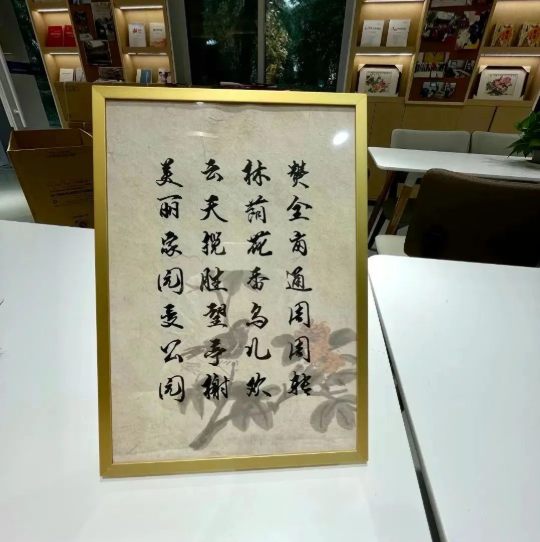 通周周转
林荫花香鸟儿欢
云天揽胜望亭榭
美丽家园变公园